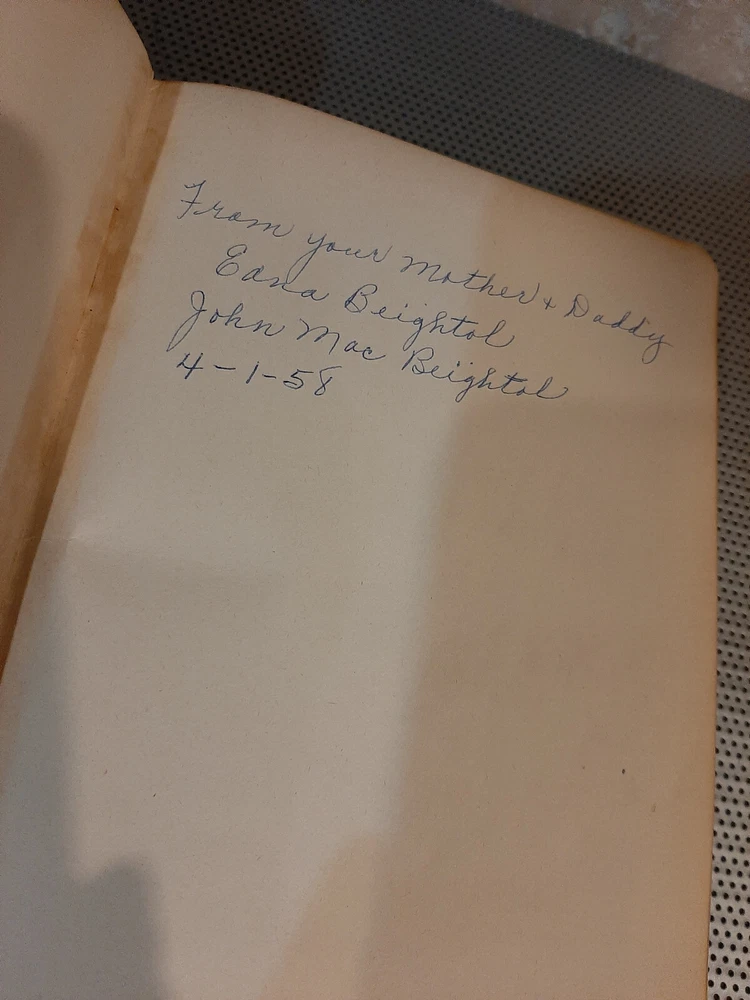 From your Mother & Daddy
Edna Beightol
John Mac Beightol
4-1-58